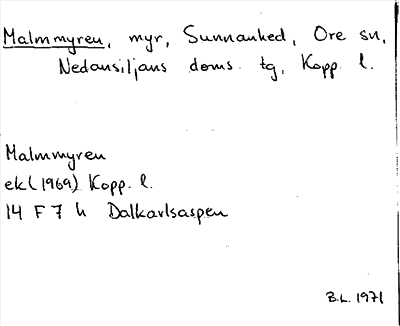 Malmmyren, myr, Sunnanhed, Ore sn,
Nedansiljans doms. tg, Kopp. l.
Malmmyren
ek (1969) Kopp. l.
14 F 7 h Dalkarlsaspen
B.L. 1971